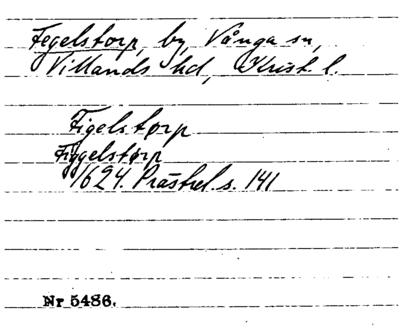 Fegelstorp, by, Vånga sn,
Villands hd, Krist. l.
Figelstorp
Figgelstorp
1624. Prästrel. s. 141
Nr 5486.